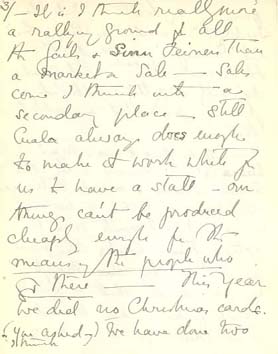 3/ - It is I think really more
a rallying ground of all
the Gaels & Sinn Feiners than
a market or Sale — Sales
come I think into a
secondary place — Still
Cuala always does enough
to make it worth while for
us to have a stall — our
things can't be produced
cheaply enough for the
means of the people who
go there — This Year
We did no Christmas cards.
(You asked I think) We have done two